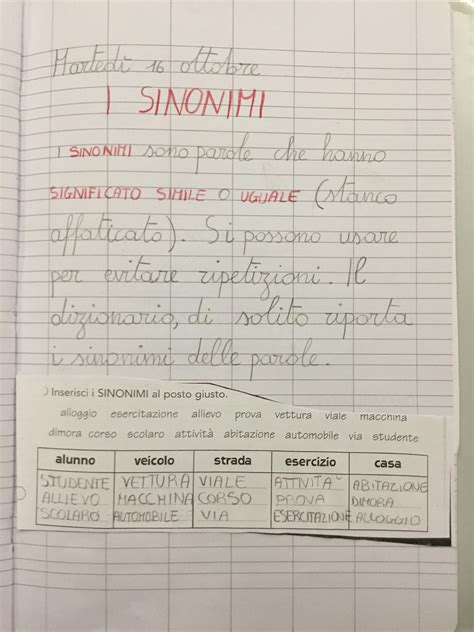 Martedì 16 ottobre
I SINONIMI
I SINONIMI sono parole che hanno
SIGNIFICATO SIMILE O UGUALE (stanco
affaticato). Si possono usare
per evitare ripetizioni. Il
dizionario, di solito riporta
i sinonimi delle parole.
) Inserisci i SINONIMI al posto giusto.
alloggio esercitazione allievo prova vettura viale macchina
dimora corso scolaro attività abitazione automobile via studente
alunno veicolo strada esercizio casa
STUDENTE VETTURA VIALE ATTIVITA' ABITAZIONE
ALLIEVO MACCHINA CORSO PROVA DIMORA
SCOLARO AUTOMOBILE VIA ESERCITAZIONE ALLOGGIO